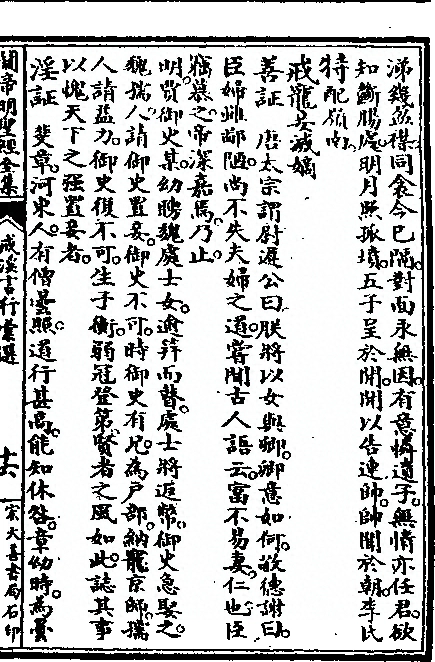 涕幾盈襟同衾今已隔對面永無因有意憐遺子無情亦任君欲
知斷腸處明月照孤墳五子呈於開開以告連帥帥聞於朝李氏
特配嶺南
戒寵妾滅嫡
善証　唐太宗謂尉遲公曰朕將以女與卿卿意如何敬德謝曰
臣婦雖鄙陋尚不失夫婦之道嘗聞古人語云富不易妻仁也臣
竊慕之帝深嘉焉乃止
明賀御史某幼聘魏處士女逾笄而瞽處士將返幣御史急娶之
魏孺人請御史置妾御史不可時御史有兄為戶部納寵京師孺
人請益力御史復不可生子衡弱冠登第賢者之風如此誌其事
以媿天下之強置妾者
淫証　斐章河東人有僧曇照道行甚高能知休咎章幼時為曇
關帝明聖經全集
戒淫言行彙選
十六
宏大善書局石印